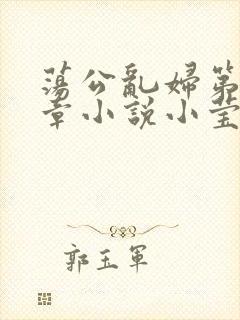 蕩公亂婦第
章小説小莹
郭玉軍